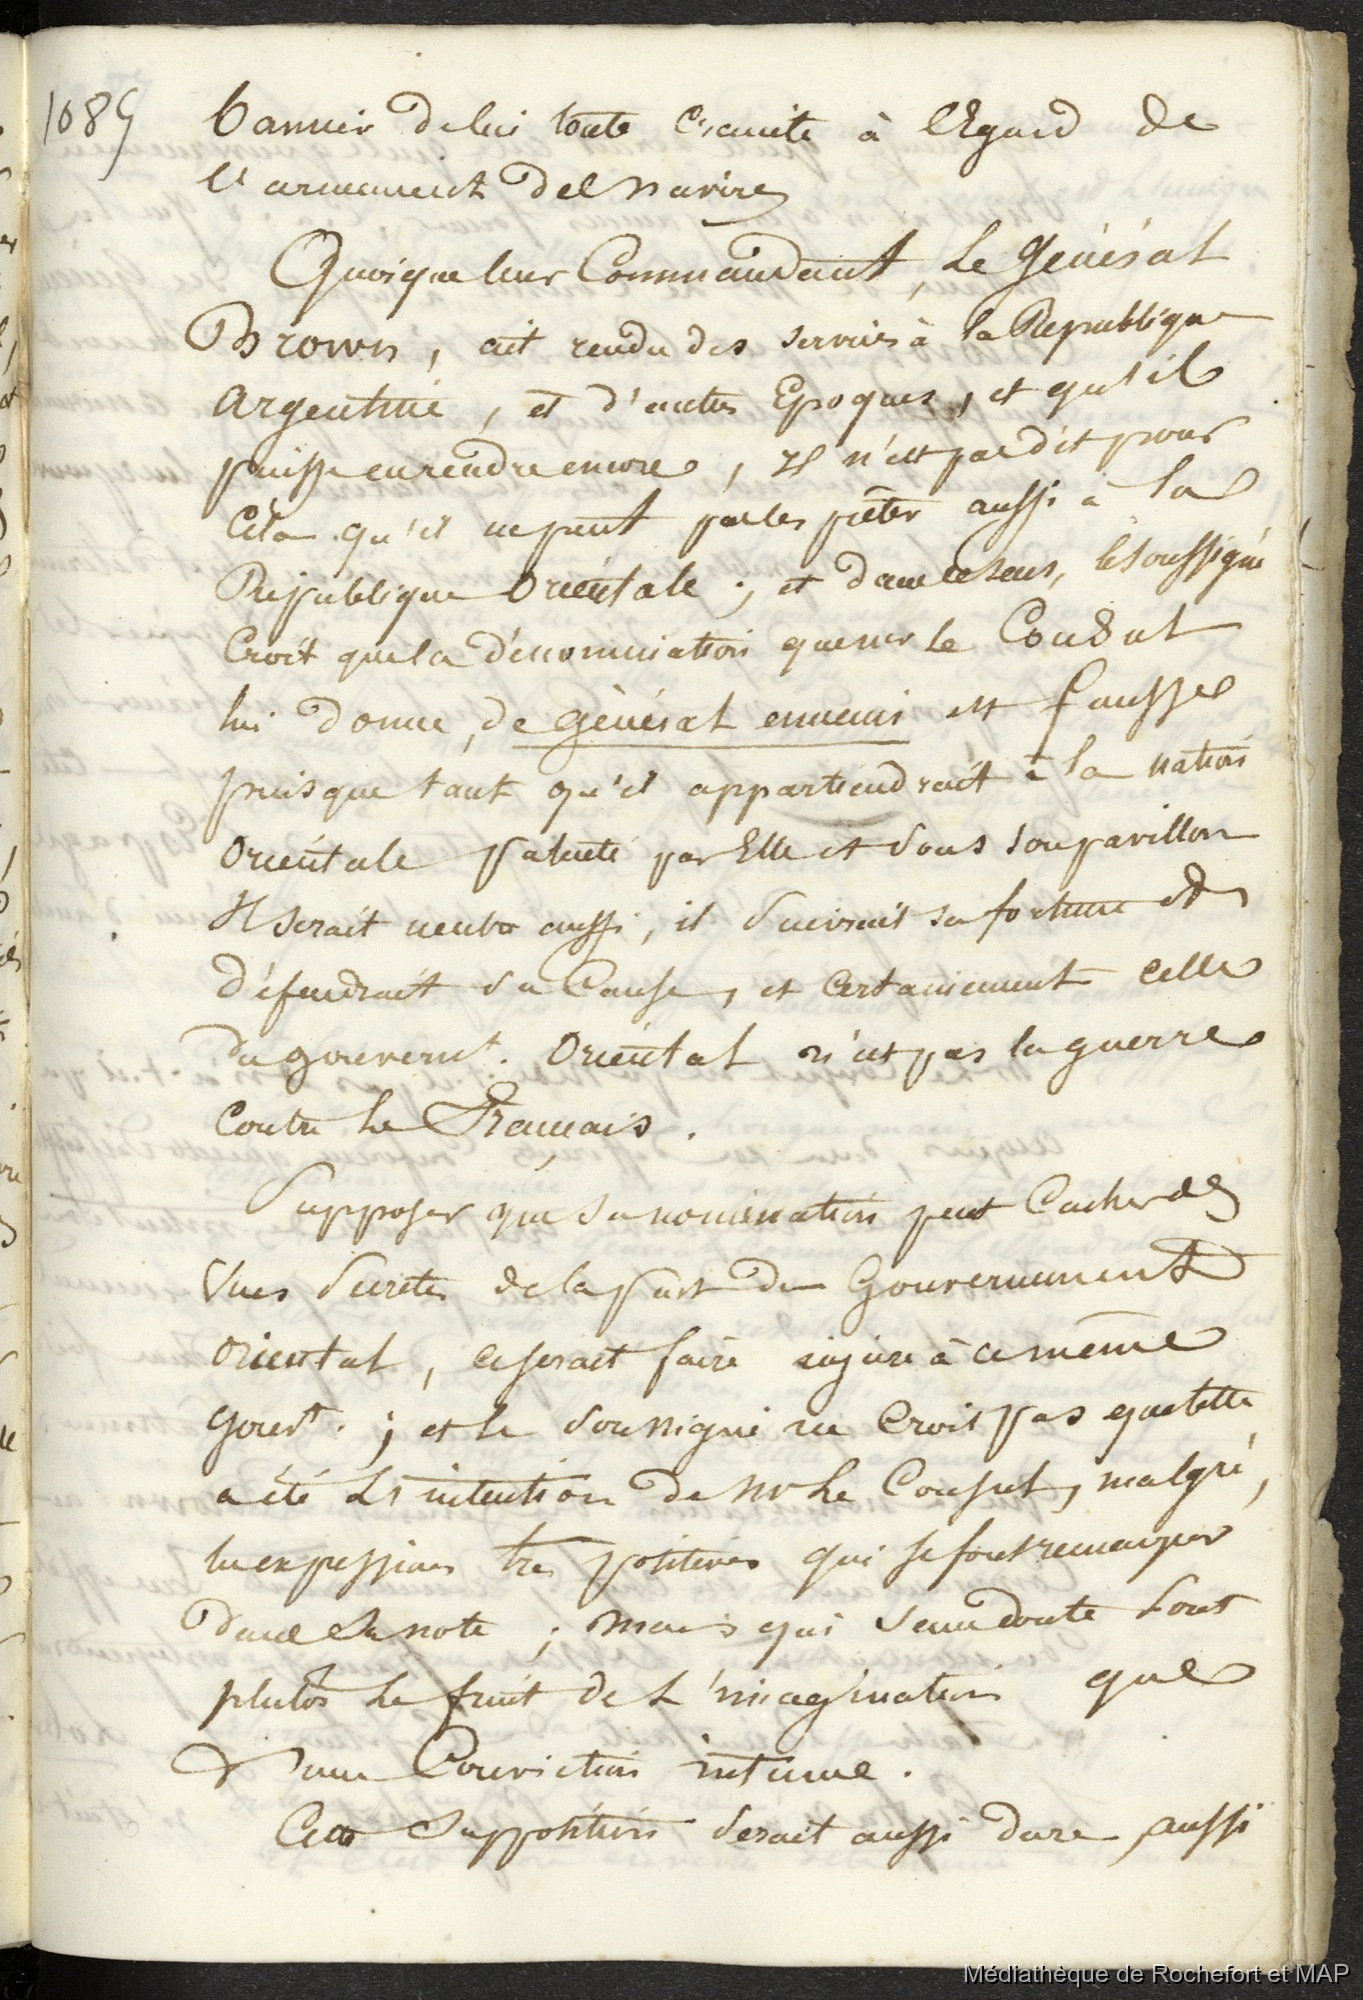 1089
bannir de lui toute crainte à l'Egard de
l'armement del navire
Quoique leur Commandant, Le Général
Brown, ait rendu des services à la République
Argentine, et d'autres Epoques, et qu'il
puisse en rendre encore, il n'est pas dit pour
Cela qu'il ne peut pas les prêter aussi à la
République Orientale ; et dans ce sens, le soussigné
Croit que la dénomination que mr le Consul
lui donne, de Général ennemi est fausse
puisque tant qu'il appartiendrait à la nation
Orientale patenté par Elle et sous son pavillon
Il serait neutre aussi, il suivrait sa fortune et
défendrait sa Cause, et certainement celle
du gouvernt. Oriental n'est pas la guerre
Contre le Français.
Supposer que sa nomination peut Cacher des
Vues Secretes de la part du Gouvernement
Oriental, ce serait faire injure à ce même
Gouvt. ; et le Soussigné ne Croit pas que telle
a été L'intention de Mr Le Consul, malgré,
les expressions très positives qui se font remarquer
dans Sa note ; mais qui sans doute sont
plutôt Le fruit de L'imagination que
d'une Conviction intime.
Cette Supposition serait aussi dure, aussi
Médiathèque de Rochefort et MAP